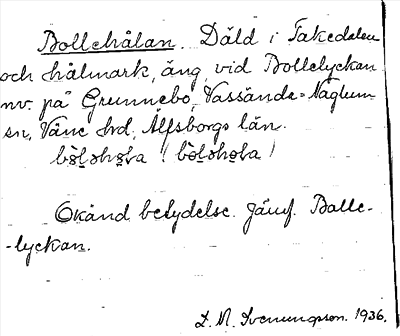 Bollehålan. Däld i Takedalen
och hålmark, äng, vid Bollelyckan
nv. på Grunnebo, Vassända-Naglum
sn, Väne hd, Älfsborgs län.
Okänd betydelse. Jämf. Bolle-
-lyckan.
1936.